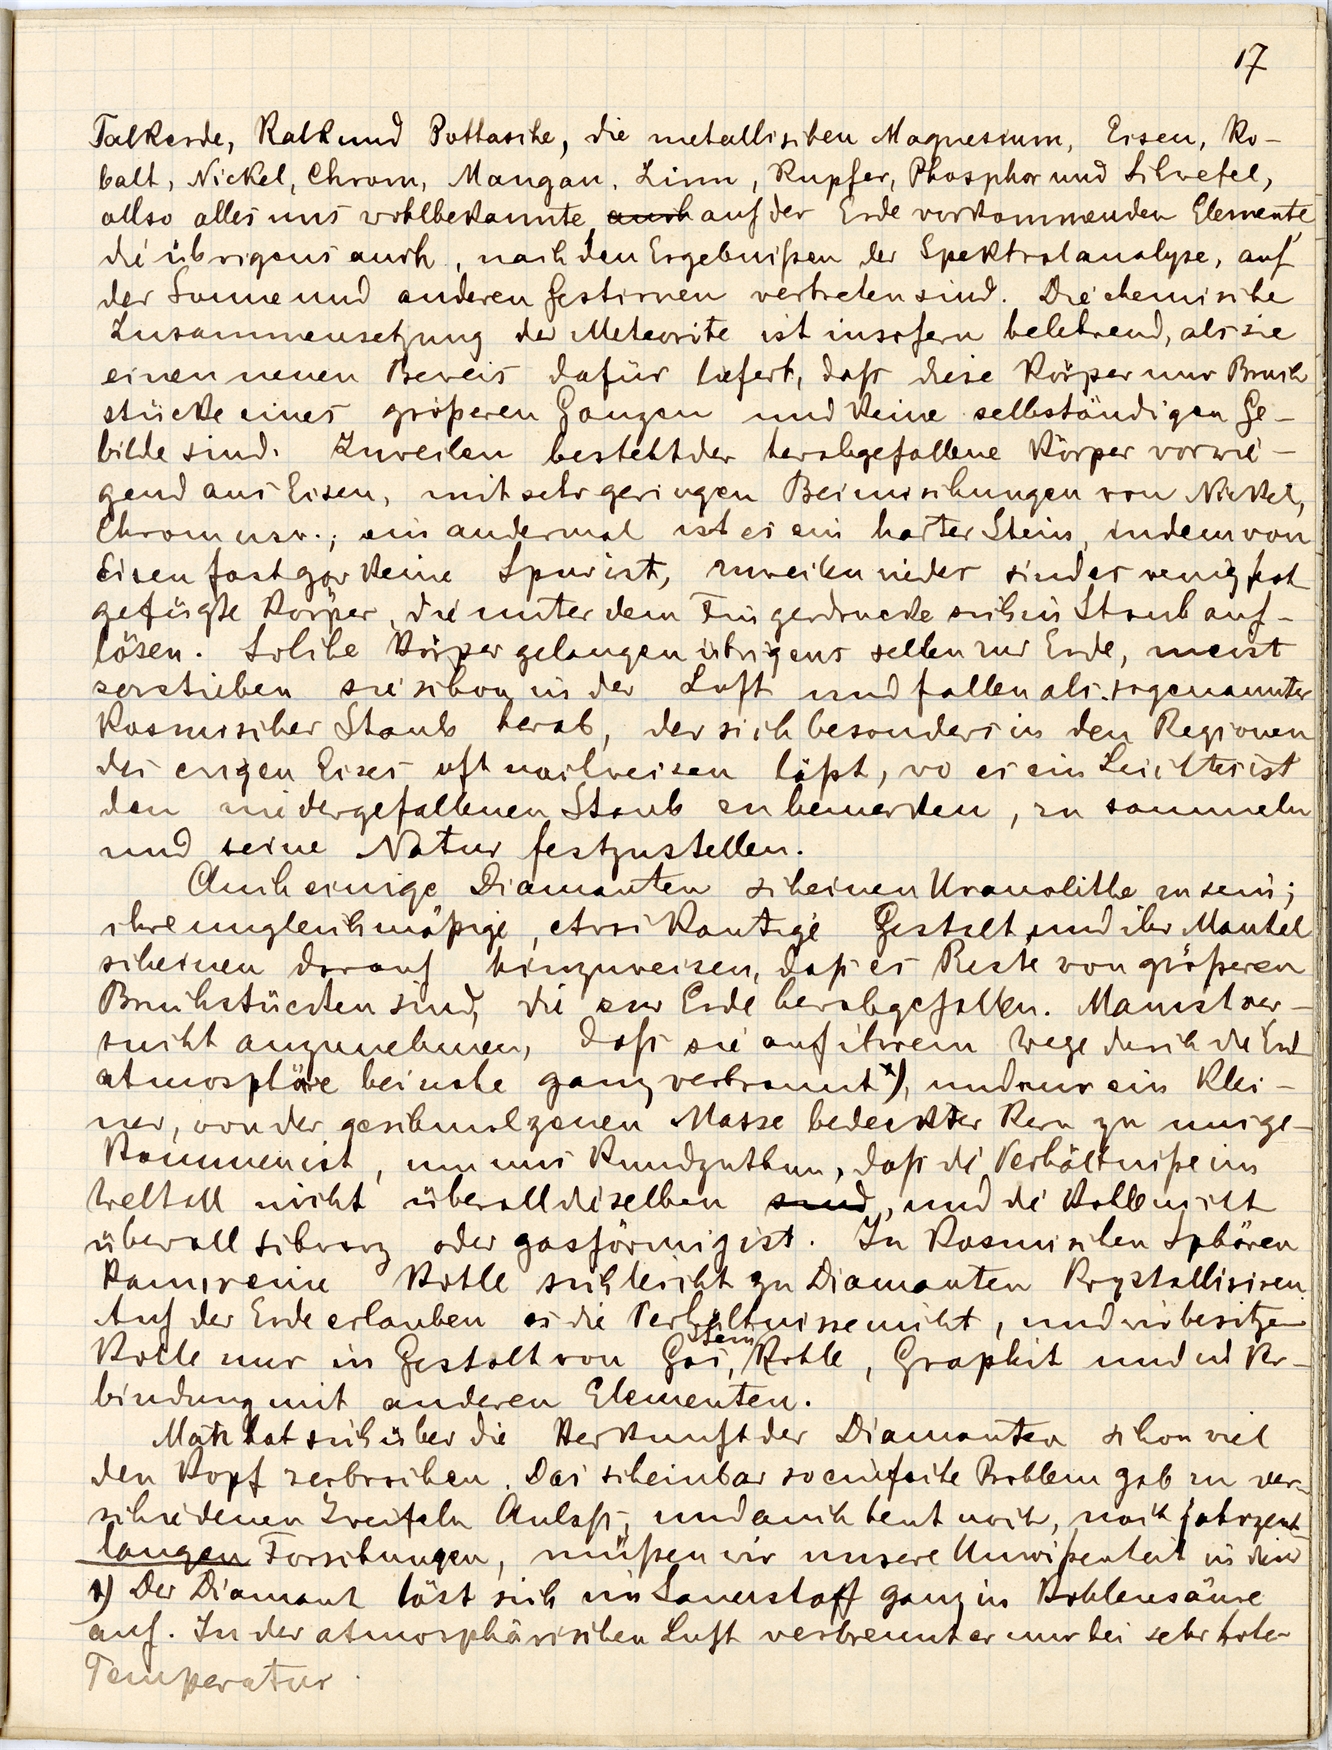 17
Talkerde, Kalk und Pottasche, die metallischen Magnesium, Eisen, Ko-
balt, Nickel, Chrom, Mangan, Zinn, Kupfer, Phosphor und Schwefel,
allso alles uns wohlbekannte, auch auf der Erde vorkommenden Elemente,
die übrigens auch, nach den Ergebnißen der Spektralanalyse, auf
der Sonne und anderen Gestirnen vertreten sind. Die chemische
Zusammensetzung der Meteorite ist insofern belehrend, als sie
einen neuen Beweis dafür liefert, daß diese Körper nur Bruch
stücke eines größeren Ganzen und keine selbständigen Ge-
bilde sind. Zuweilen besteht der herabgefallene Körper vorwie-
gend aus Eisen, mit sehr geringen Beimischungen von Nickel,
Chrom usw.; ein andermal ist es ein harter Stein, in dem von
Eisen fast gar keine Spur ist, zuweilen wieder sind es wenig fest
gefügte Körper, die unter dem Fingerdrucke sich in Staub auf-
lösen. Solche Körper gelangen übrigens selten zur Erde, meist
zerstieben sie schon in der Luft und fallen als sogenannter
kosmischer Staub herab, der sich besonders in den Regionen
des ewigen Eises oft nachweisen läßt, wo es ein Leichtes ist
den niedergefallenen Staub zu bemerken, zu sammeln
und seine Natur festzustellen.
Auch einige Diamanten scheinen Uranolithe zu sein;
ihre ungleichmäßige, kantige Gestalt und ihr Mantel
scheinen darauf hinzuweisen, daß es Reste von größeren
Bruchstücken sind, die zur Erde herabgefallen. Man ist ver-
sucht anzunehmen, daß sie auf ihrem Wege durch die Erd
atmosphäre beinahe ganz verbrannt x), und nur ein klei-
ner, von der geschmolzenen Masse bedeckter Kern zu uns ge-
kommen ist, um uns kundzuthun, daß die Verhältniße im
Weltall nicht überall dieselben sind, und die Kohle nicht
überall schwarz oder gasförmig ist. In kosmischen Sphären
kann reine Kohle sich leicht zu Diamanten krystallisiren.
Auf der Erde erlauben es die Verhältnisse nicht, und wir besitzen
Kohle nur in Gestalt von Gas, Stein Kohle, Graphit und in Ver-
bindung mit anderen Elementen.
Man hat sich über die Herkunft der Diamanten schon viel
den Kopf zerbrochen. Das scheinbar so einfache Problem gab zu ver-
schiedenen Zweifeln Anlaß, und auch heut noch, nach jahrzent
langen Forschungen, müßen wir unsere Unwißenheit in
x) Der Diamant löst sich im Sauerstoff ganz in Kohlensäure
auf. In der atmosphärischen Luft verbrennt er nur bei sehr hoher
Temperatur.